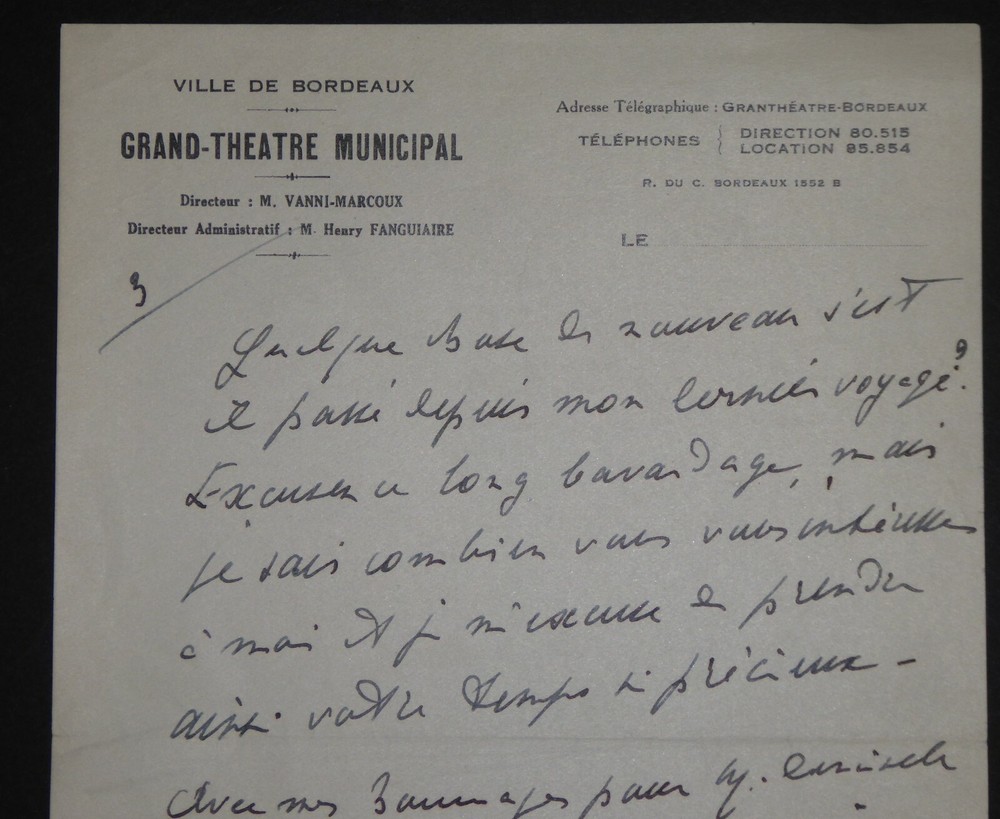 VILLE DE BORDEAUX
GRAND-THEATRE MUNICIPAL
Directeur : M. VANNI-MARCOUX
Directeur Administratif : M. Henry FANGUIAIRE
Adresse Télégraphique : GRANTHÉATRE-BORDEAUX
TÉLÉPHONES { DIRECTION 80.515
LOCATION 85.854
R. DU C. BORDEAUX 1552 B
LE
3
Quelque chose de nouveau s'est
il passé depuis mon dernier voyage ?
Excusez ce long bavardage, mais
je sais combien vous vous intéressez
à moi et je m'excuse de prendre
ainsi votre temps si précieux -
Avec mes hommages pour